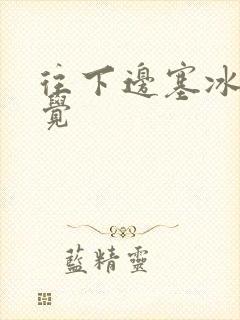 往下邊塞冰
覺
藍精靈